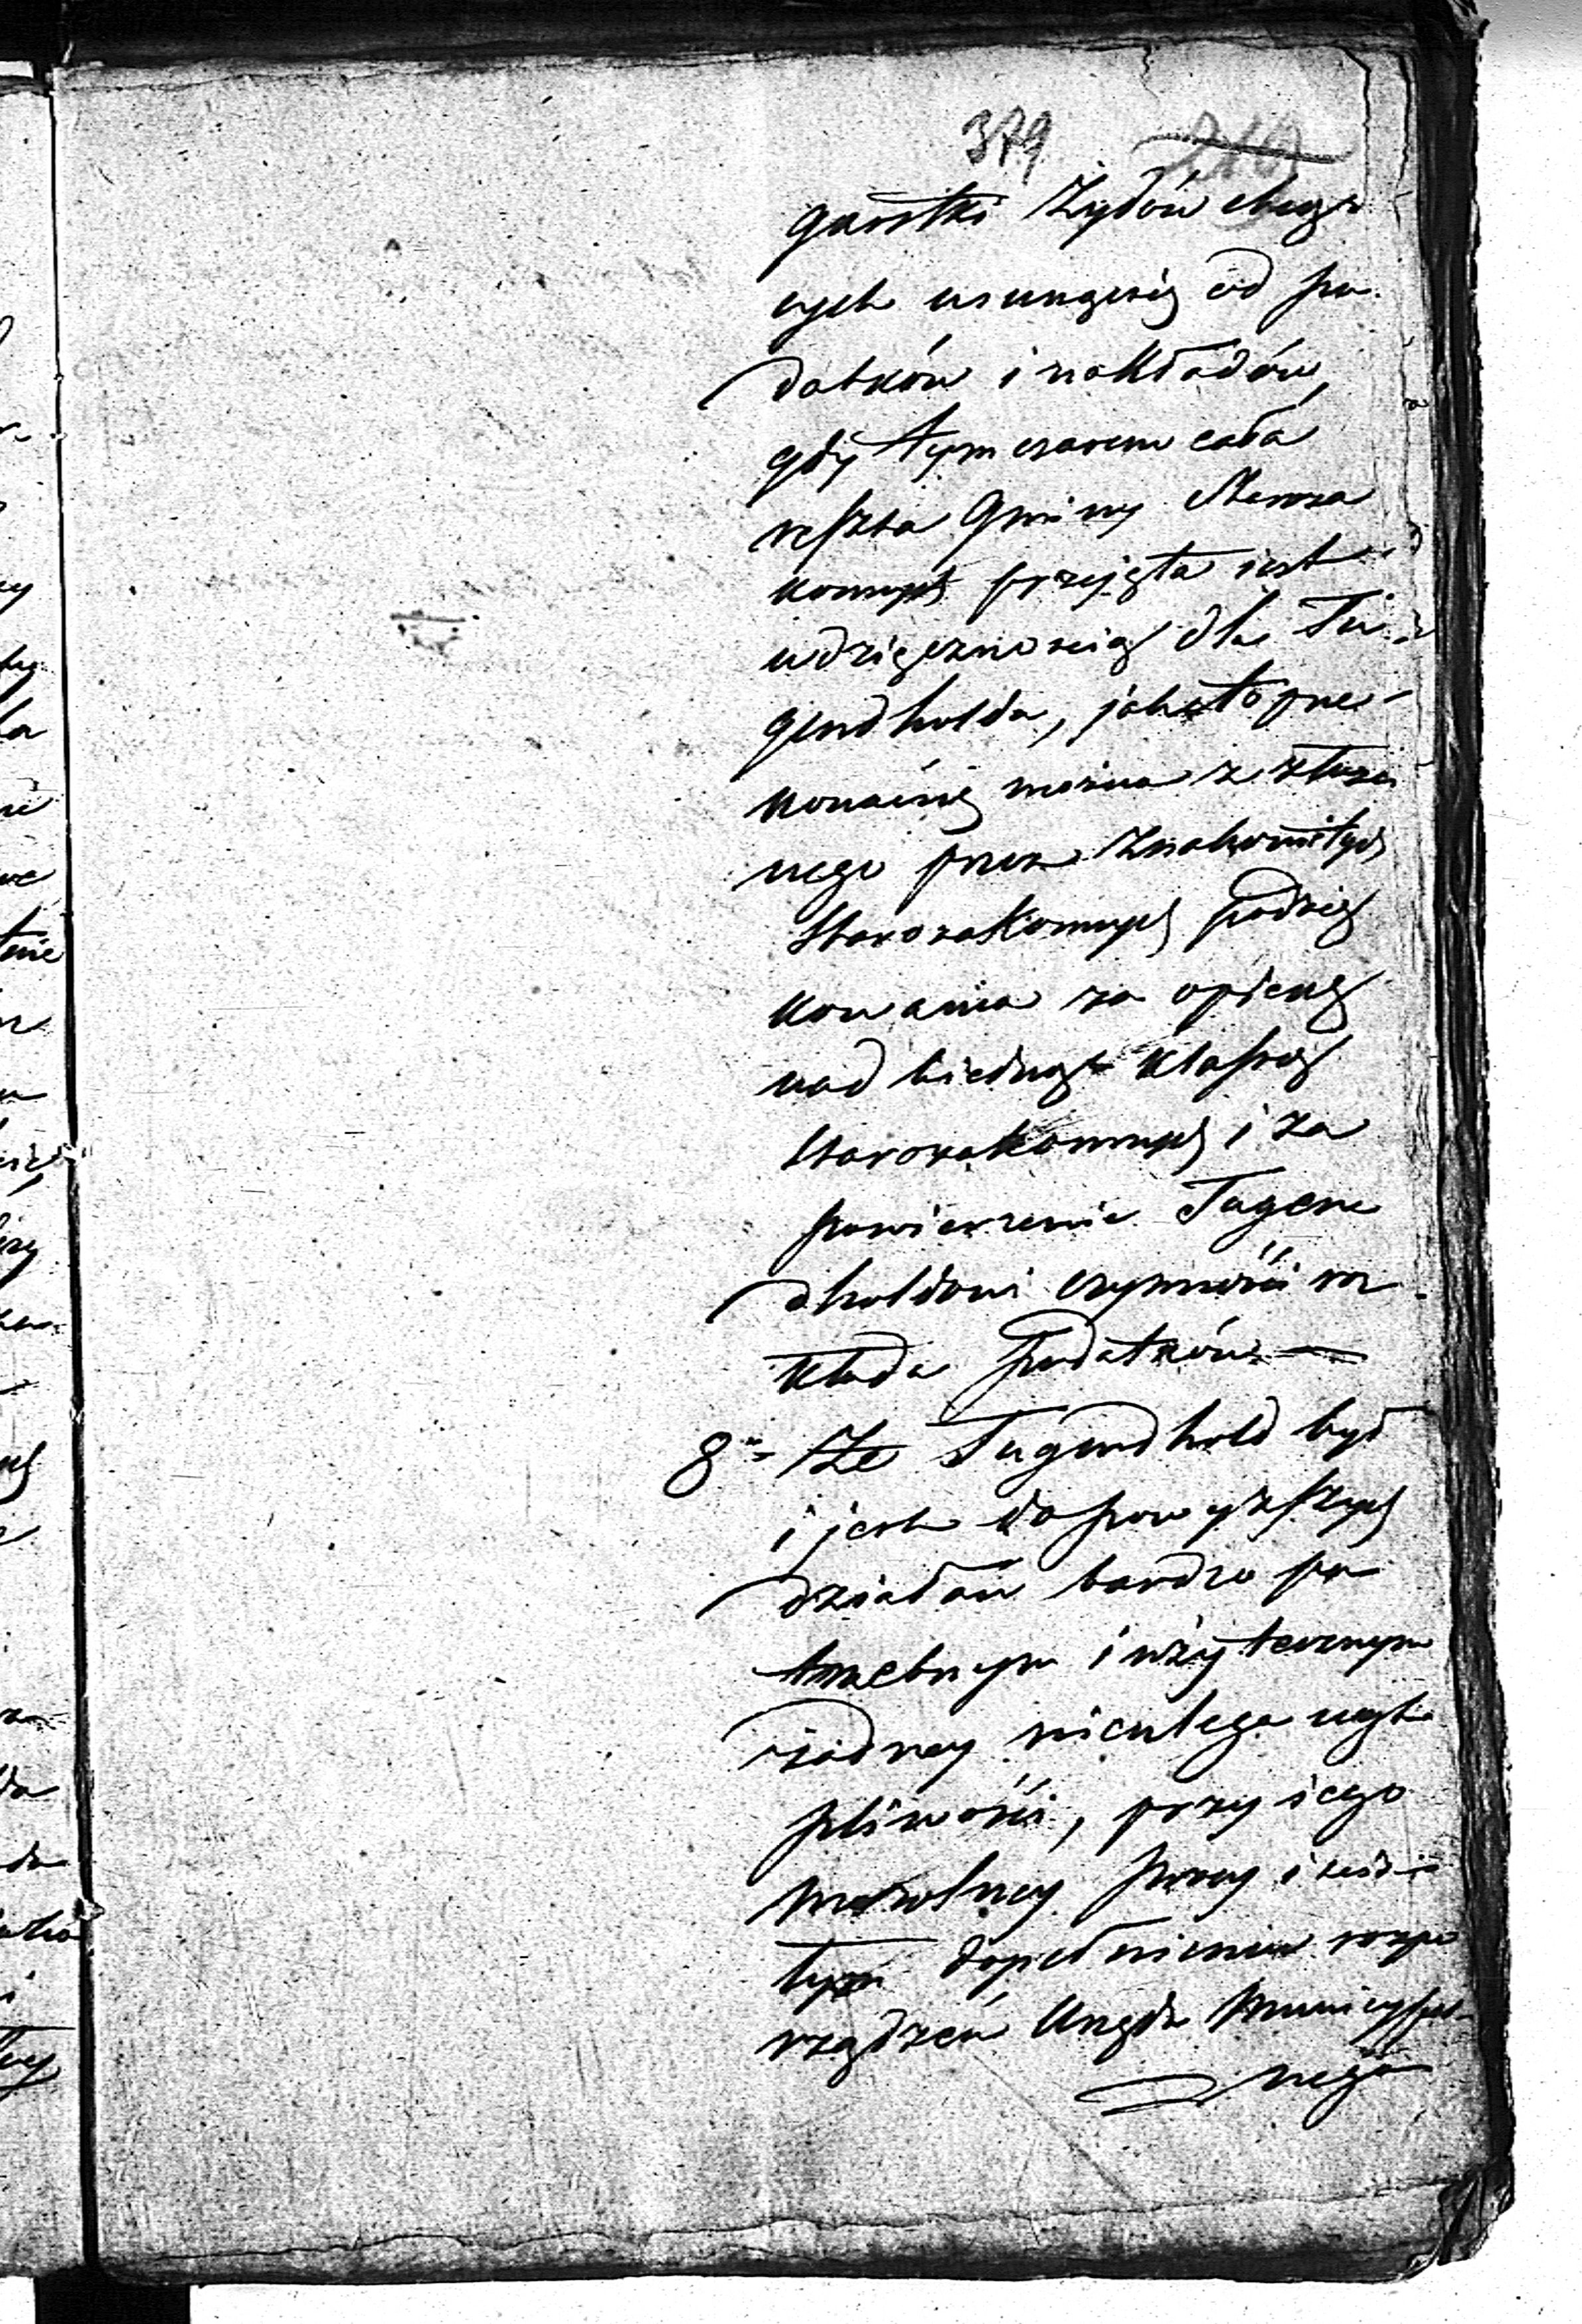 379
garstki Żydów chcą
cych usunąć się od po
datków i nakładów,
gdy tym czasem cała
reszta Gminy Staroza
konnych przejęta iest
wdzięcznością dla Tu
gendholda, jak to prze-
konać się można z złożo
nego przez znakomitych
Starozakonnych podzię
kowania za opiekę
nad biedną klassą
Starozakonnych i za
powierzenie Tugen
dholdowi czynności roz
kładu podatków.—
8° Że Tugendhold był
i jest do powyższych
działań bardzo po
trzebnym i użytecznym
żadney nieulega wąt
pliwości, przy iego
mozolney pracy i
tym dopełnieniu rozpo
rządzeń Urzędu Municypal-
nego